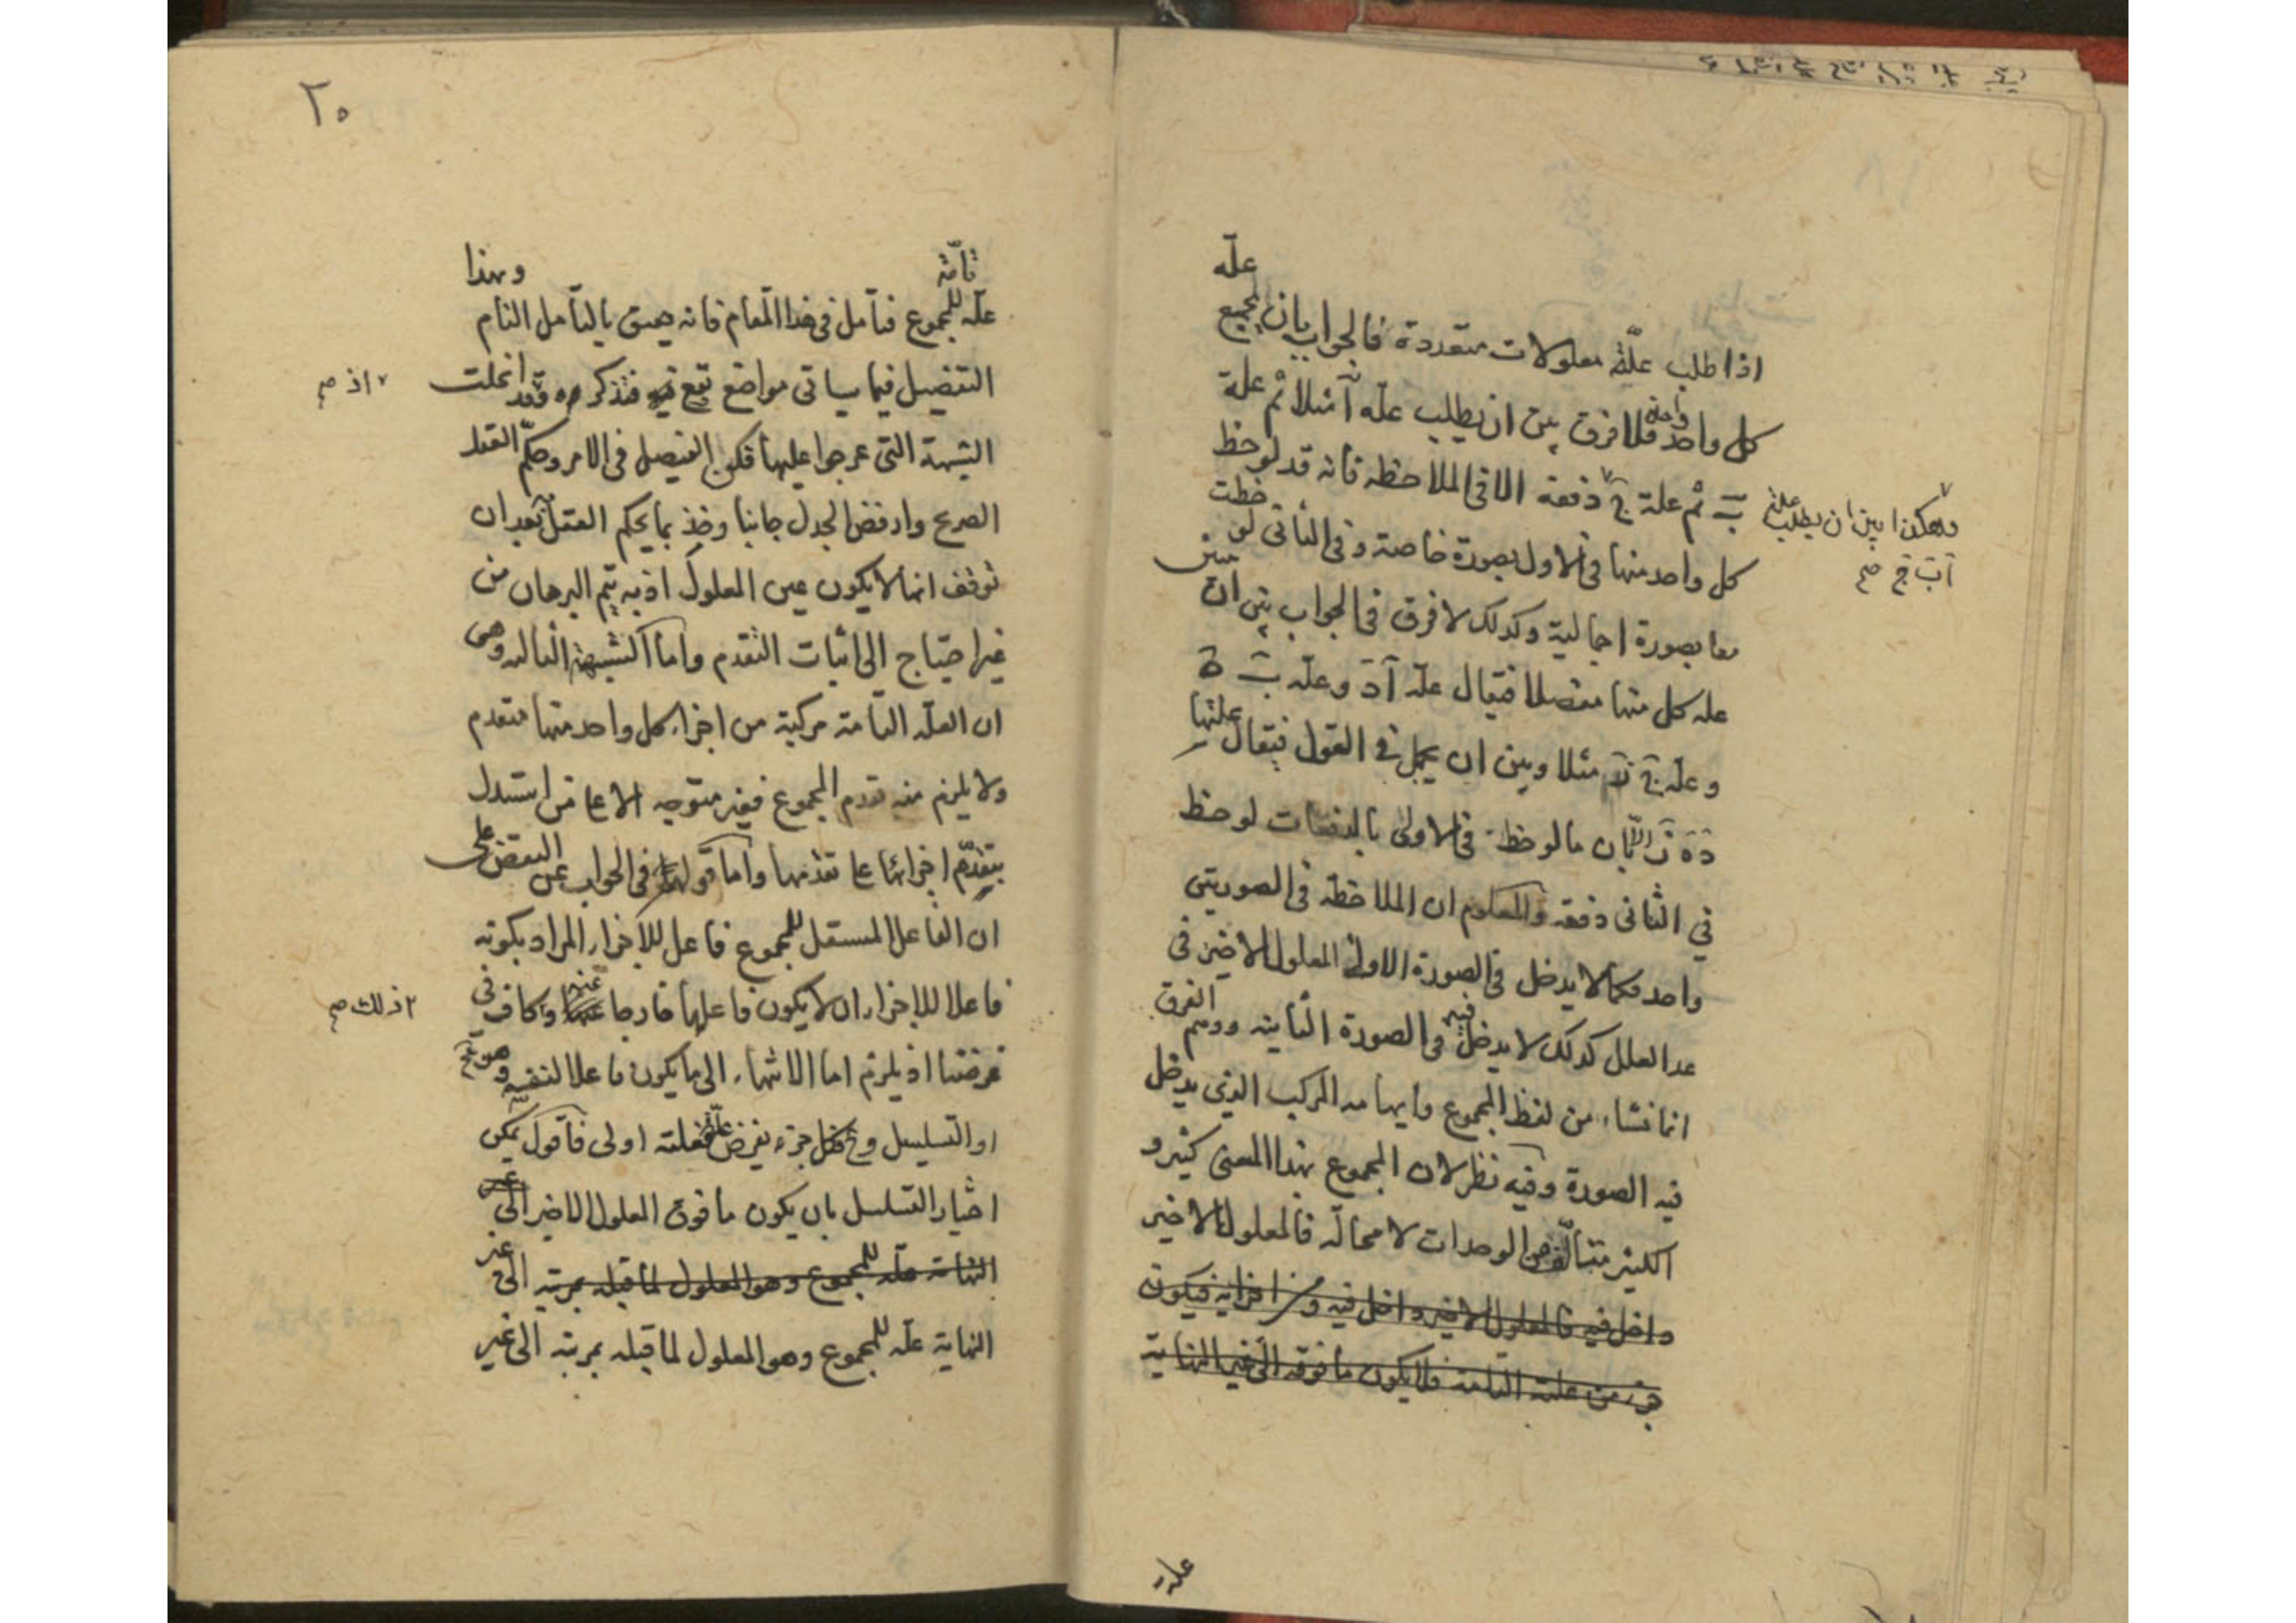 علة
اذا طلب علة معلولات متعددة فالجواب بان يجمع
كل واحد واحد فلا فرق بين ان يطلب علة آ مثلا ثم علة
ب ثم علة ج دفعة الا في الملاحظة فانه قد لوحظ
وهكذا بين ان يطلب علة
آ ب ج صح
كل واحد منها في الاول بصورة خاصة وفي الثاني لوحظت
معا بصورة اجمالية وكذلك لا فرق في الجواب بين ان
علة كل منها مفصلا فيقال علة آ د وعلة ب ه
وعلة ج ز مثلا وبين ان يجمل في القول فيقال علتها
د ه ز الا بان ما لوحظ في الاولى بالدفعات لوحظ
في الثاني دفعة والمعلوم ان الملاحظة في الصورتين
واحد فكما لا يدخل في الصورة الاولى المعلول الاخير في
عد العلل كذلك لا يدخل فيه في الصورة الثانية ووهم الفرق
انما نشاء من لفظ المجموع وايهامه المركب الذي يدخل
فيه الصورة وفيه نظر لان المجموع بهذا المعنى كثير و
الكثير متألف من الوحدات لا محالة فالمعلول الاخير
داخل فيه فالمعلول الاخير داخل فيه و من اجزائه فيكون
جزء من علته التامة فلا يكون ما فوقه الى غير النهاية
علة
٢٠
تامة
علة للمجموع فتأمل في هذا المقام فانه حقيق بالتأمل التام وبهذا
التفصيل فيما سياتي مواضع تقع فيه فتذكره فقد انحلت
اذ صح
الشبهة التي عرجوا عليها فكن الفيصل في الامر وحكم العقل
الصريح وارفض الجدل جانبا وخذ بما يحكم العقل بعد ان
توقف انما لا يكون عين المعلول اذ به يتم البرهان من
غير احتياج الى اثبات التقدم واما الشبهة الثالثة وهي
ان العلة التامة مركبة من اجزاء كل واحد منها متقدم
ولا يلزم منه تقدم المجموع فغير متوجه الا على من استدل
بتقدم اجزائها على تقدمها واما قولهم في الجواب عن النقض على
ان الفاعل المستقل للمجموع فاعل للاجزاء المراد بكونه
فاعلا للاجزاء ان لا يكون فاعلها خارجا عنه وكاف في
ذلك صح
غرضنا اذ يلزم اما الانتهاء الى ما يكون فاعلا لنفسه وهو مح
او التسلسل وح فكل جزء يفرض علة فعلته اولى فاقول يمكن
اختيار التسلسل بان يكون ما فوق المعلول الاخير الى غير
النهاية علة للمجموع وهو المعلول لما قبله بمرتبة الى غير
النهاية علة للمجموع وهو المعلول لما قبله بمرتبة الى غير